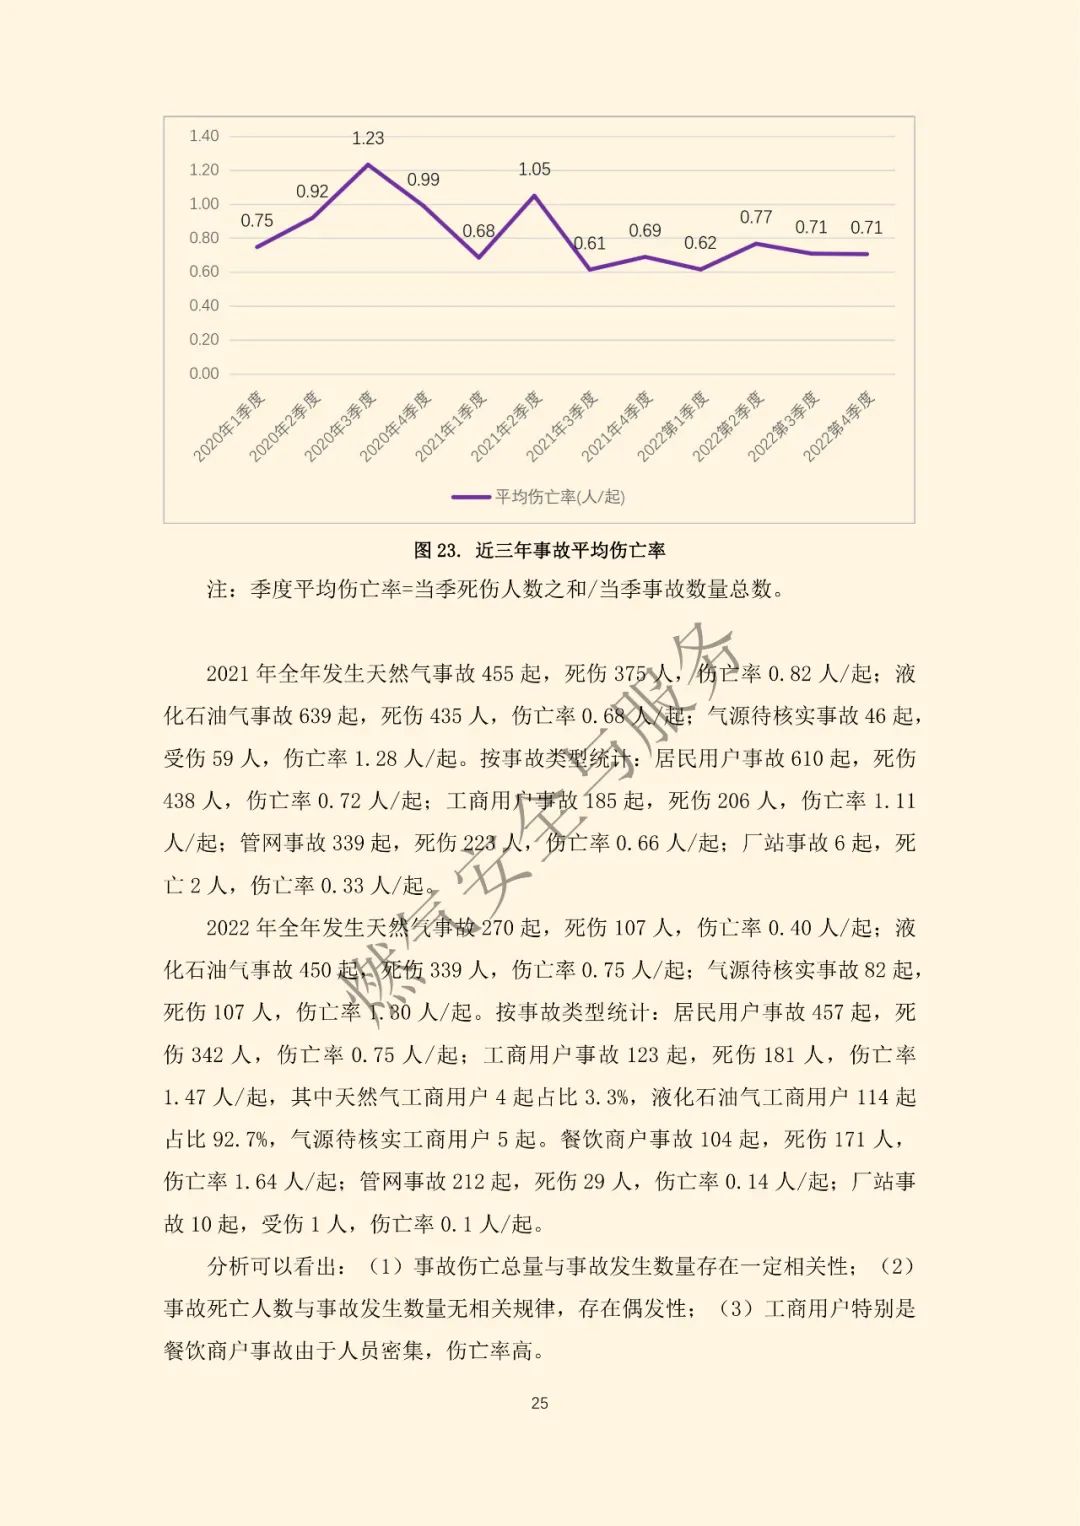 1.40
1.20
1.00
0.80
0.60
0.40
0.20
0.00
0.75
0.92
1.23
0.99
0.68
1.05
0.61
0.69
0.62
0.77
0.71
0.71
2020年1季度
2020年2季度
2020年3季度
2020年4季度
2021年1季度
2021年2季度
2021年3季度
2021年4季度
2022第1季度
2022第2季度
2022第3季度
2022第4季度
平均伤亡率(人/起)
图 23. 近三年事故平均伤亡率
注：季度平均伤亡率=当季死伤人数之和/当季事故数量总数。
2021 年全年发生天然气事故 455 起，死伤 375 人，伤亡率 0.82 人/起；液
化石油气事故 639 起，死伤 435 人，伤亡率 0.68 人/起；气源待核实事故 46 起，
受伤 59 人，伤亡率 1.28 人/起。按事故类型统计：居民用户事故 610 起，死伤
438 人，伤亡率 0.72 人/起；工商用户事故 185 起，死伤 206 人，伤亡率 1.11
人/起；管网事故 339 起，死伤 223 人，伤亡率 0.66 人/起；厂站事故 6 起，死
亡 2 人，伤亡率 0.33 人/起。
2022 年全年发生天然气事故 270 起，死伤 107 人，伤亡率 0.40 人/起；液
化石油气事故 450 起，死伤 339 人，伤亡率 0.75 人/起；气源待核实事故 82 起，
死伤 107 人，伤亡率 1.30 人/起。按事故类型统计：居民用户事故 457 起，死
伤 342 人，伤亡率 0.75 人/起；工商用户事故 123 起，死伤 181 人，伤亡率
1.47 人/起，其中天然气工商用户 4 起占比 3.3%，液化石油气工商用户 114 起
占比 92.7%，气源待核实工商用户 5 起。餐饮商户事故 104 起，死伤 171 人，
伤亡率 1.64 人/起；管网事故 212 起，死伤 29 人，伤亡率 0.14 人/起；厂站事
故 10 起，受伤 1 人，伤亡率 0.1 人/起。
分析可以看出：（1）事故伤亡总量与事故发生数量存在一定相关性；（2）
事故死亡人数与事故发生数量无相关规律，存在偶发性；（3）工商用户特别是
餐饮商户事故由于人员密集，伤亡率高。
燃气安全与服务
25